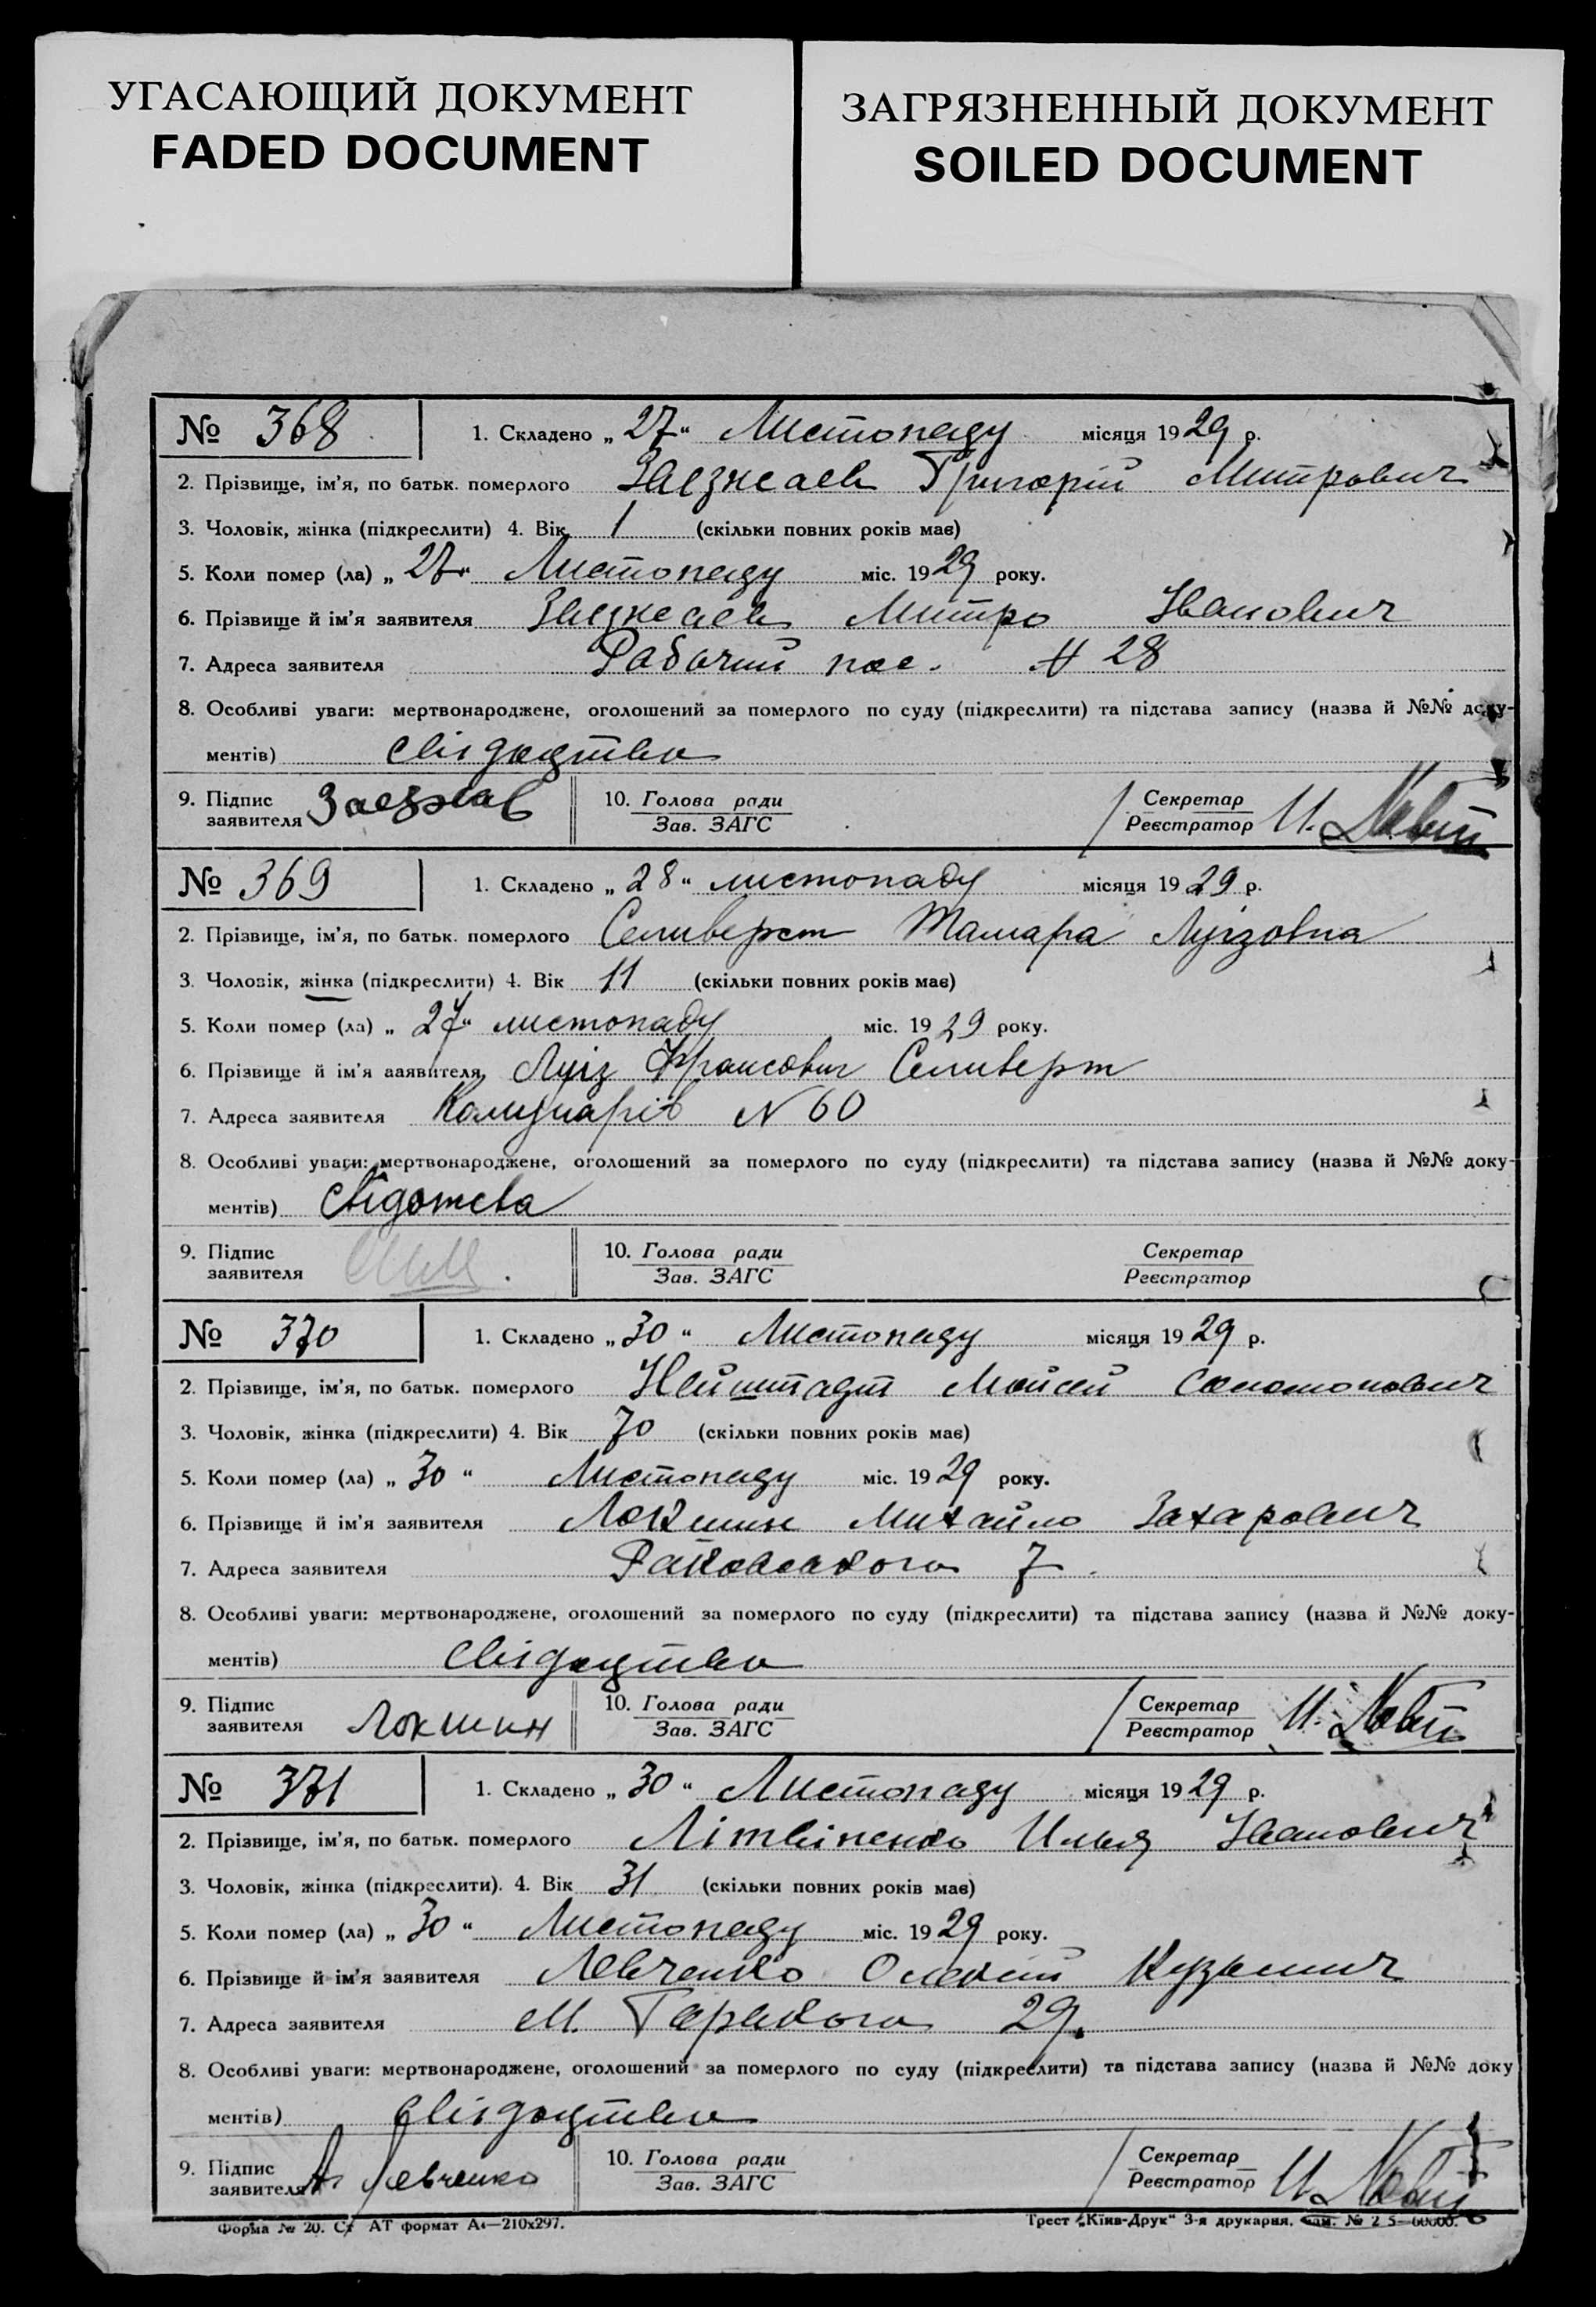 УГАСАЮЩИЙ ДОКУМЕНТ
FADED DOCUMENT
ЗАГРЯЗНЕННЫЙ ДОКУМЕНТ
SOILED DOCUMENT
№ 368 1. Складено „27“ Листопаду місяця 1929 р.
2. Прізвище, ім’я, по батьк. померлого Заезжаев Григорій Митрович
3. Чоловік, жінка (підкреслити) 4. Вік 1 (скільки повних років має)
5. Коли помер (ла) „27“ Листопаду міс. 1929 року.
6. Прізвище й ім’я заявителя Заезжаев Митро Іванович
7. Адреса заявителя Рабочий пос. № 28
8. Особливі уваги: мертвонароджене, оголошений за померлого по суду (підкреслити) та підстава запису (назва й №№ доку-
ментів) свідоцтво
9. Підпис заявителя Заезжаев 10. Голова ради Зав. ЗАГС Секретар Реєстратор И.
№ 369 1. Складено „28“ листопаду місяця 1929 р.
2. Прізвище, ім’я, по батьк. померлого Семиверст Тамара Луізовна
3. Чоловік, жінка (підкреслити) 4. Вік 11 (скільки повних років має)
5. Коли помер (ла) „27“ листопаду міс. 1929 року.
6. Прізвище й ім’я заявителя Луіз Семиверт
7. Адреса заявителя Комунарів № 60
8. Особливі уваги: мертвонароджене, оголошений за померлого по суду (підкреслити) та підстава запису (назва й №№ доку-
ментів)
9. Підпис заявителя 10. Голова ради Зав. ЗАГС Секретар Реєстратор
№ 370 1. Складено „30“ Листопаду місяця 1929 р.
2. Прізвище, ім’я, по батьк. померлого Нейштадт Мойсей Соломонович
3. Чоловік, жінка (підкреслити) 4. Вік 70 (скільки повних років має)
5. Коли помер (ла) „30“ Листопаду міс. 1929 року.
6. Прізвище й ім’я заявителя Локшин Михайло Захарович
7. Адреса заявителя Раковского 7
8. Особливі уваги: мертвонароджене, оголошений за померлого по суду (підкреслити) та підстава запису (назва й №№ доку-
ментів) свідоцтво
9. Підпис заявителя Локшин 10. Голова ради Зав. ЗАГС Секретар Реєстратор И.
№ 371 1. Складено „30“ Листопаду місяця 1929 р.
2. Прізвище, ім’я, по батьк. померлого Літвіненко Илья Іванович
3. Чоловік, жінка (підкреслити). 4. Вік 31 (скільки повних років має)
5. Коли помер (ла) „30“ Листопаду міс. 1929 року.
6. Прізвище й ім’я заявителя Левченко Олексій Кузьмич
7. Адреса заявителя М. Горького 29.
8. Особливі уваги: мертвонароджене, оголошений за померлого по суду (підкреслити) та підстава запису (назва й №№ доку
ментів) свідоцтво
9. Підпис заявителя А. Левченко 10. Голова ради Зав. ЗАГС Секретар Реєстратор И.
Форма № 20. Ст АТ формат А4—210х297.
Трест „Київ-Друк“ 3-я друкарня.